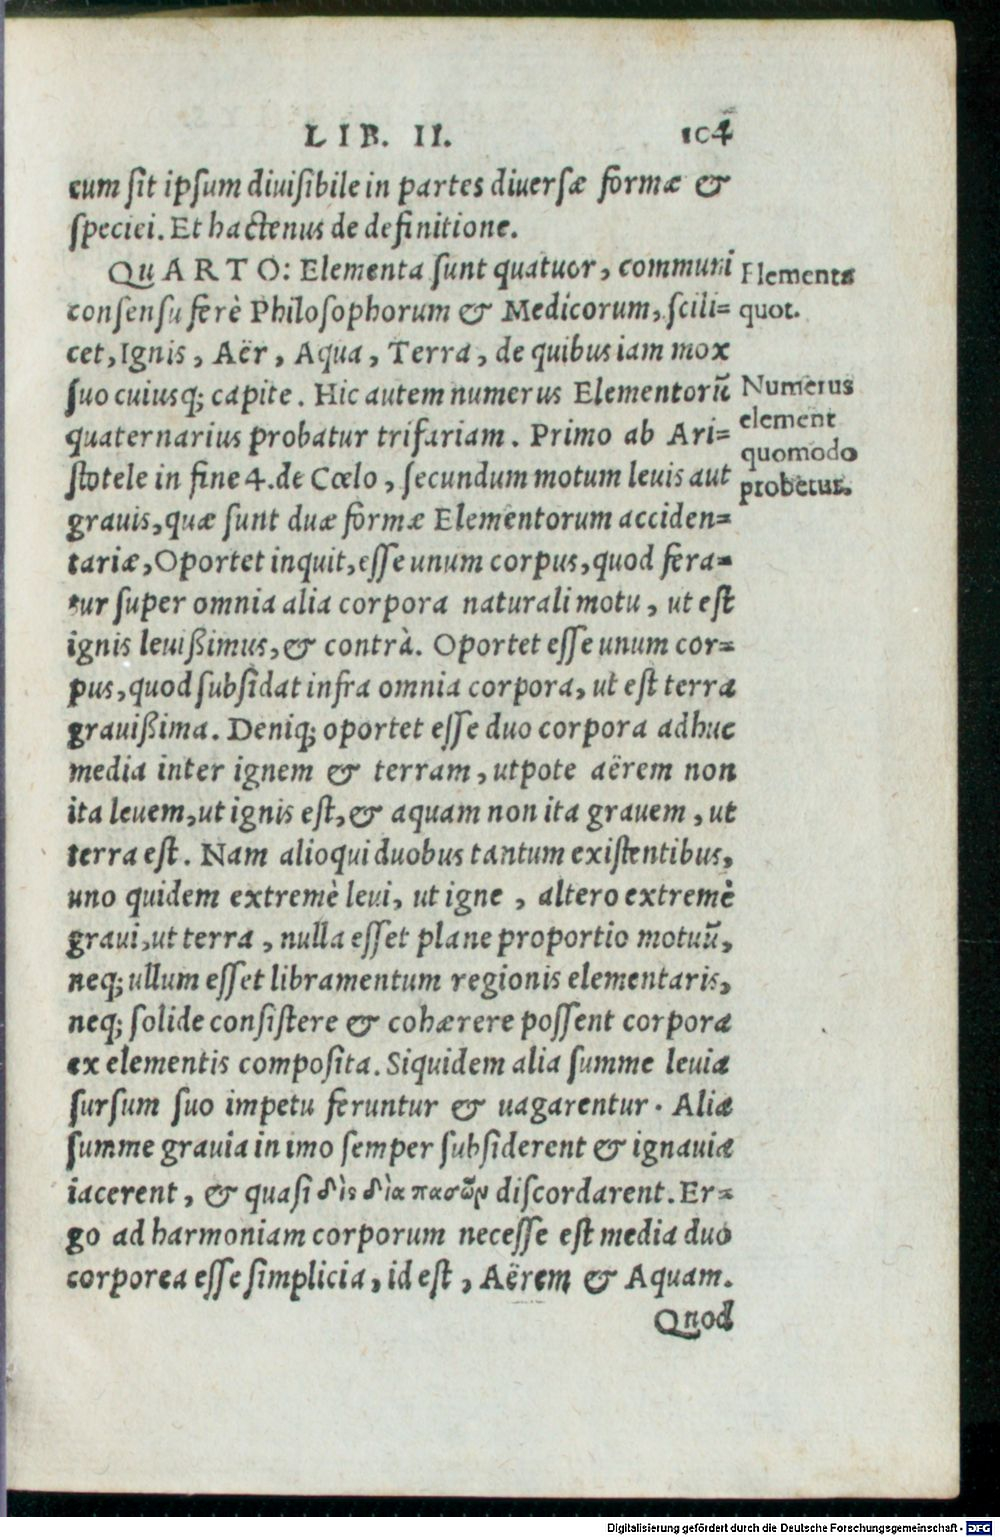 LIB. II. 104
cum sit ipsum diuisibile in partes diuersæ formæ &
speciei. Et hactenus de definitione.
QuARTO: Elementa sunt quatuor, communi
consensu ferè Philosophorum & Medicorum, scili=
cet, Ignis, Aër, Aqua, Terra, de quibus iam mox
suo cuiusq; capite. Hic autem numerus Elementorũ
quaternarius probatur trifariam. Primo ab Ari=
stotele in fine 4. de Cœlo, secundum motum leuis aut
grauis, quæ sunt duæ formæ Elementorum acciden=
tariæ, Oportet inquit, esse unum corpus, quod fera=
tur super omnia alia corpora naturali motu, ut est
ignis leuißimus, & contrà. Oportet esse unum cor=
pus, quod subsidat infra omnia corpora, ut est terra
grauißima. Deniq; oportet esse duo corpora adhuc
media inter ignem & terram, utpote aërem non
ita leuem, ut ignis est, & aquam non ita grauem, ut
terra est. Nam alioqui duobus tantum existentibus,
uno quidem extremè leui, ut igne, altero extremè
graui, ut terra, nulla esset plane proportio motuũ,
neq; ullum esset libramentum regionis elementaris,
neq; solide consistere & cohærere possent corpora
ex elementis composita. Siquidem alia summe leuia
sursum suo impetu feruntur & uagarentur. Alia
summe grauia in imo semper subsiderent & ignauia
iacerent, & quasi δὶς δὶα πασῶν discordarent. Er=
go ad harmoniam corporum necesse est media duo
corporea esse simplicia, id est, Aërem & Aquam.
Quod
Elementa
quot.
Numerus
element
quomodo
probetur.
Digitalisierung gefördert durch die Deutsche Forschungsgemeinschaft - DFG